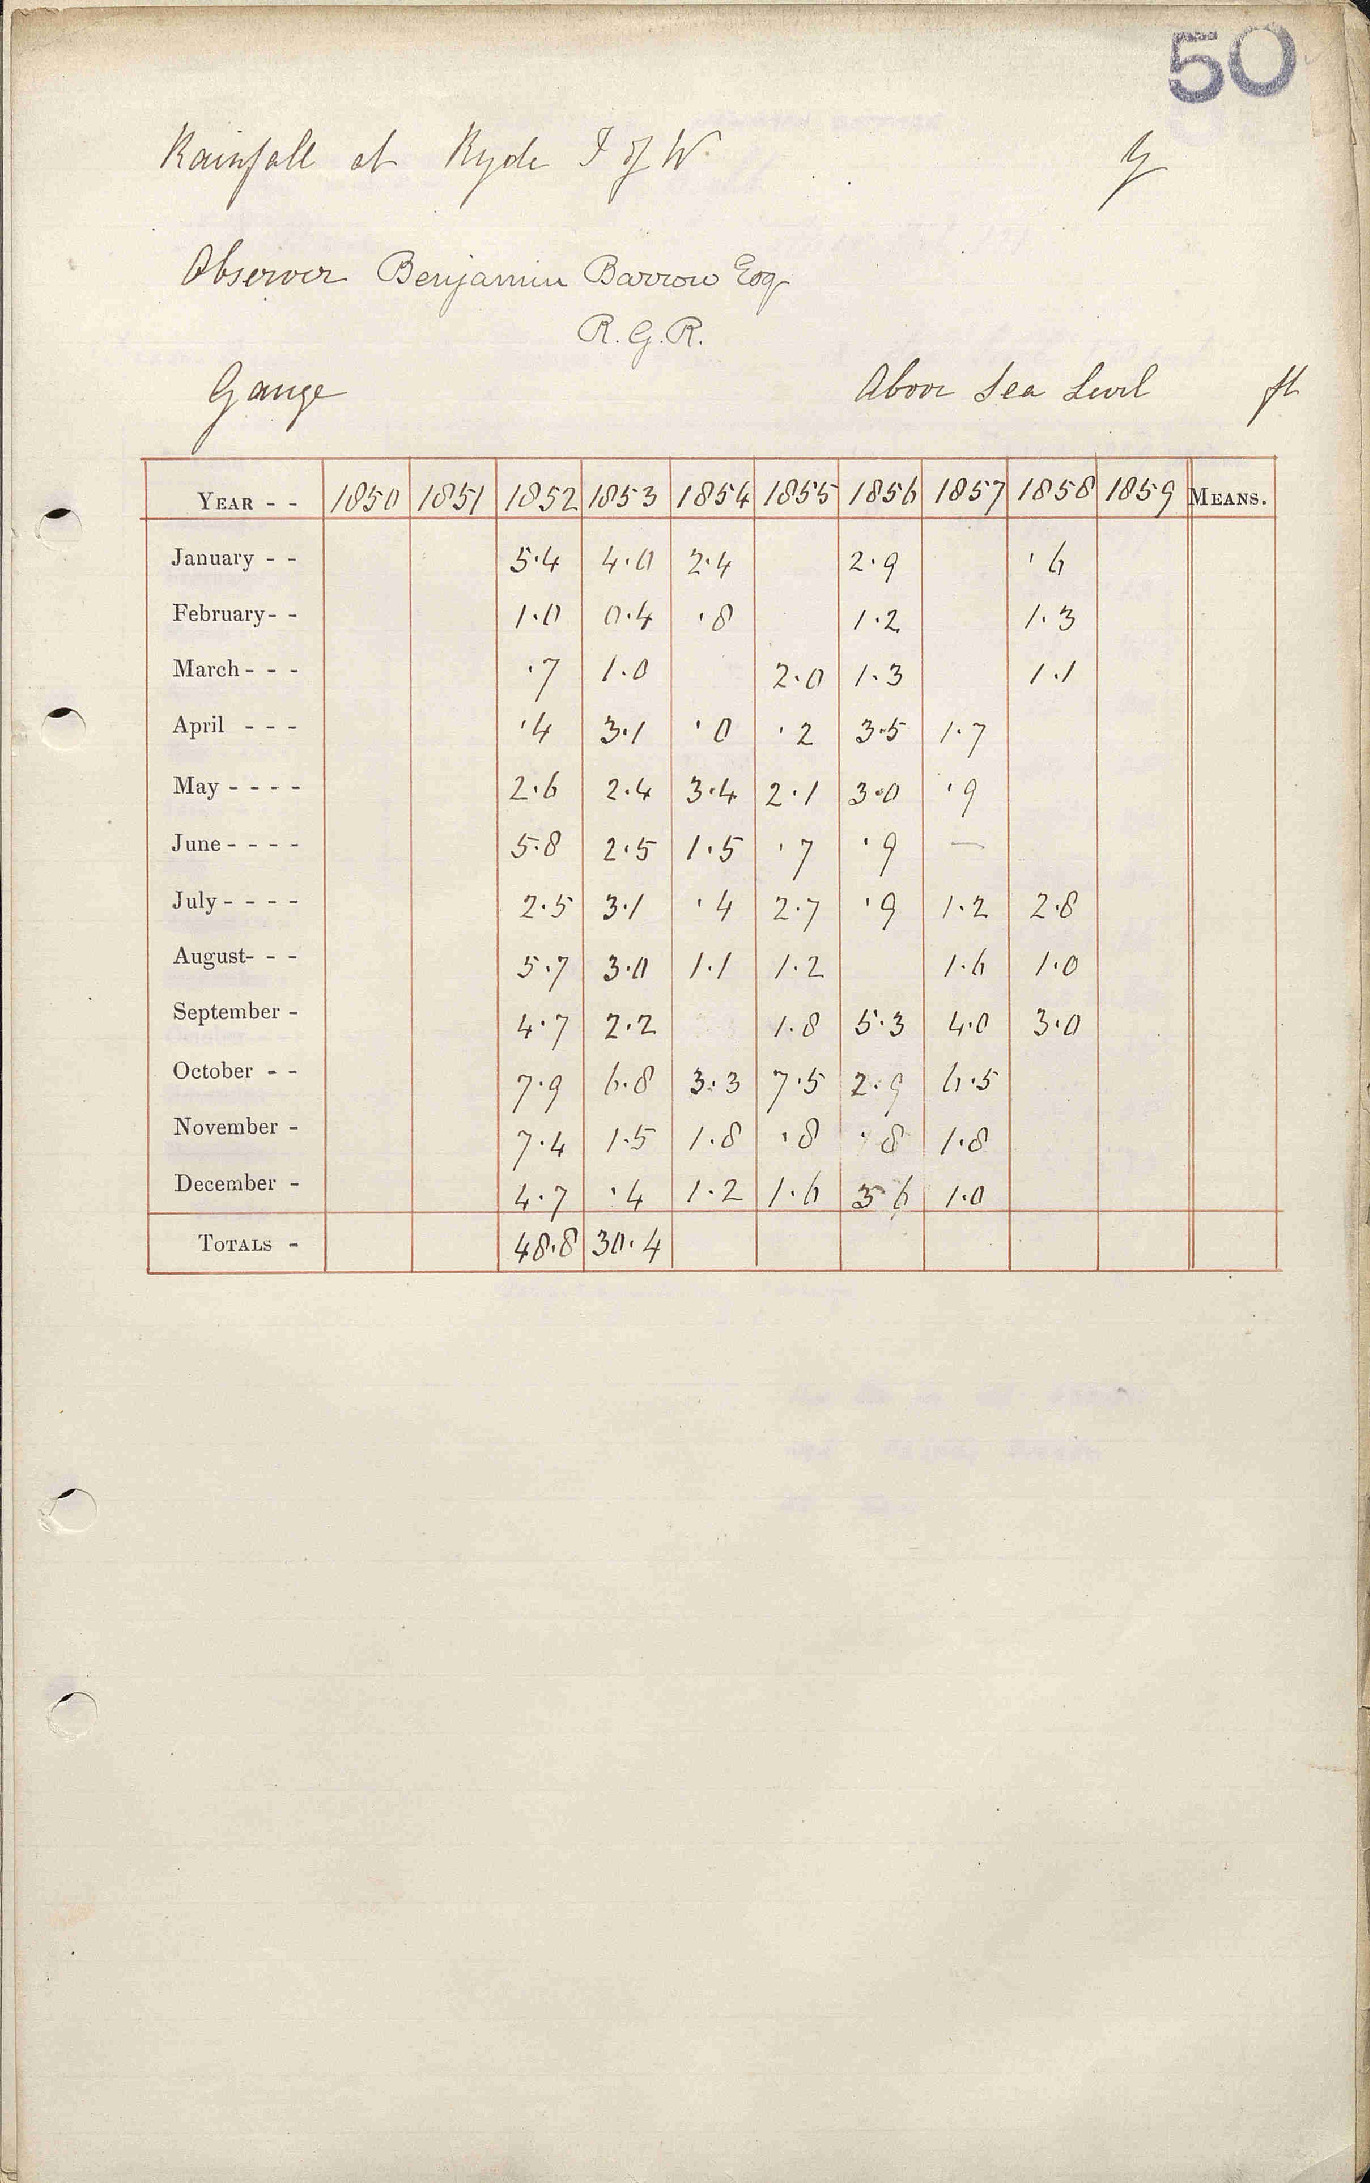 50
Rainfall at Ryde I of W.
Observer Benjamin Barrow Esq
R.G.R.
Gauge Above Sea Level ft
YEAR - - 1850 1851 1852 1853 1854 1855 1856 1857 1858 1859 MEANS.
January - - 5.4 4.0 2.4 2.9 .6
February - - 1.0 0.4 .8 1.2 1.3
March - - - .7 1.0 2.0 1.3 1.1
April - - - .4 3.1 .0 .2 3.5 1.7
May - - - - 2.6 2.4 3.4 2.1 3.0 .9
June - - - - 5.8 2.5 1.5 .7 .9 —
July - - - - 2.5 3.1 .4 2.7 .9 1.2 2.8
August - - - 5.7 3.0 1.1 1.2 1.6 1.0
September - 4.7 2.2 1.8 5.3 4.0 3.0
October - - 7.9 6.8 3.3 7.5 2.9 6.5
November - 7.4 1.5 1.8 .8 .8 1.8
December - 4.7 .4 1.2 1.6 3 6 1.0
TOTALS - 48.8 30.4